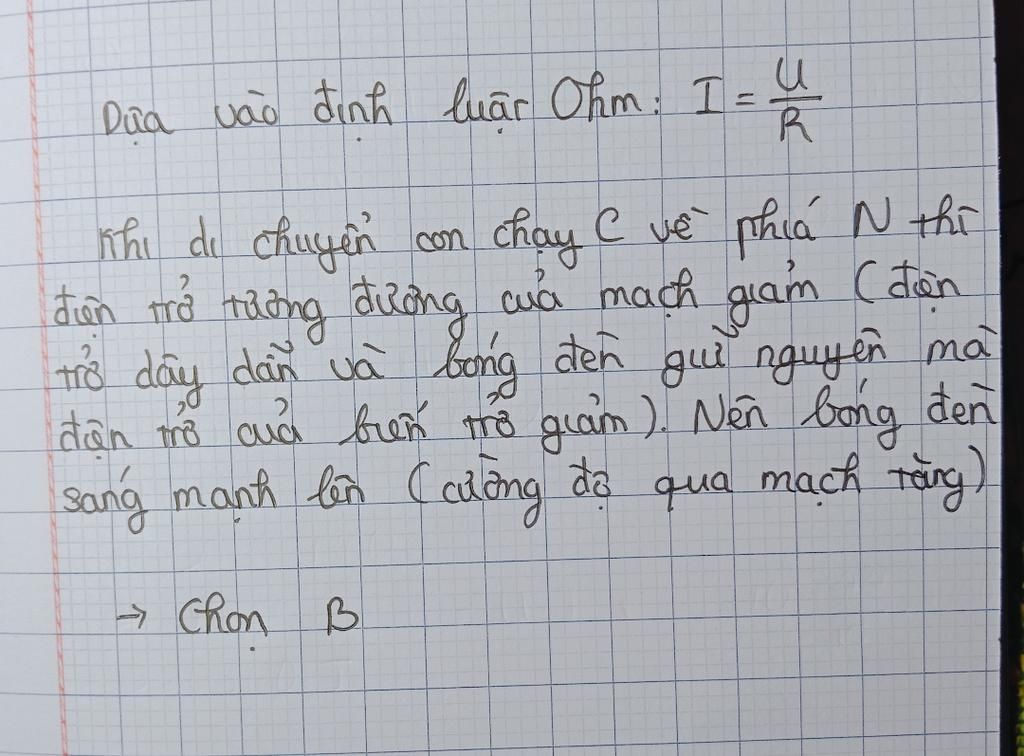 Dựa vào định luật Ohm: I = U/R
Khi di chuyển con chạy C về phía N thì
điện trở tương đương của mạch giảm (điện
trở dây dẫn và bóng đèn giữ nguyên mà
điện trở của biến trở giảm). Nên bóng đèn
sáng mạnh lên (cường độ qua mạch tăng)
→ Chọn B